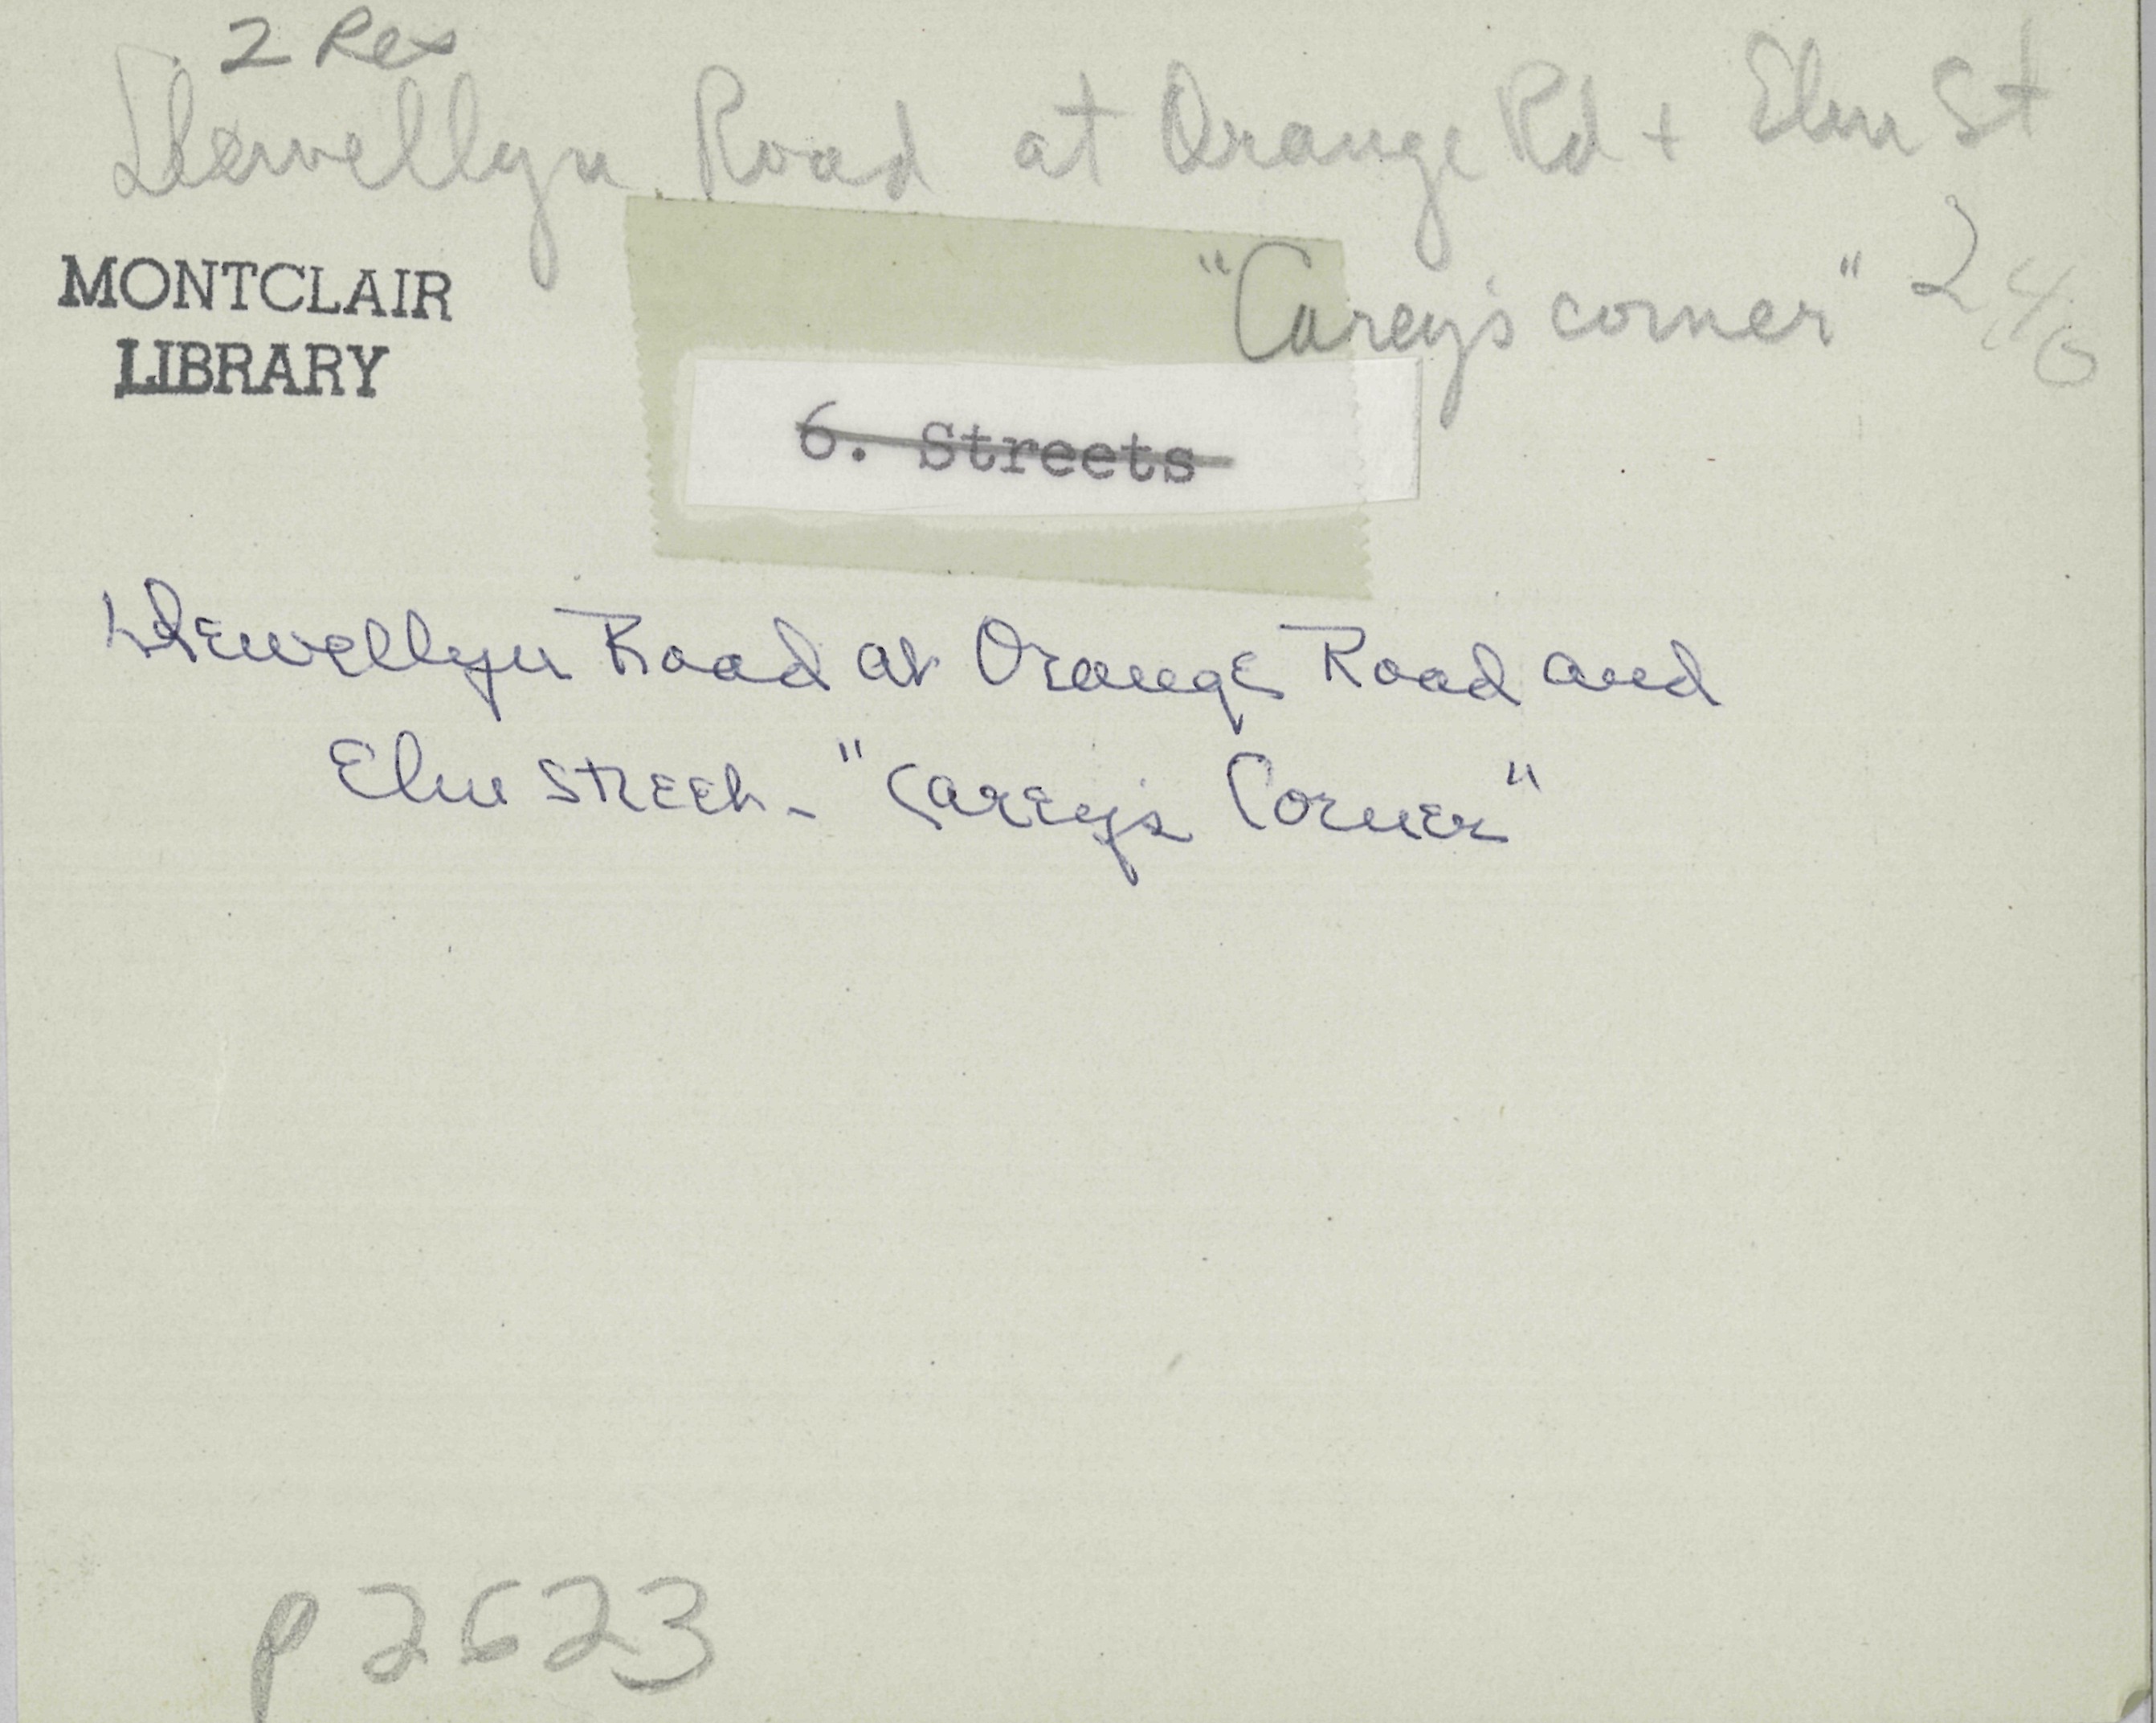 2 Rex
Llewellyn Road at Orange Rd + Elm St
"Carey's corner" 2 4/6
MONTCLAIR
LIBRARY
6. Streets
Llewellyn Road at Orange Road and
Elm Street - "Carey's Corner"
p 2623